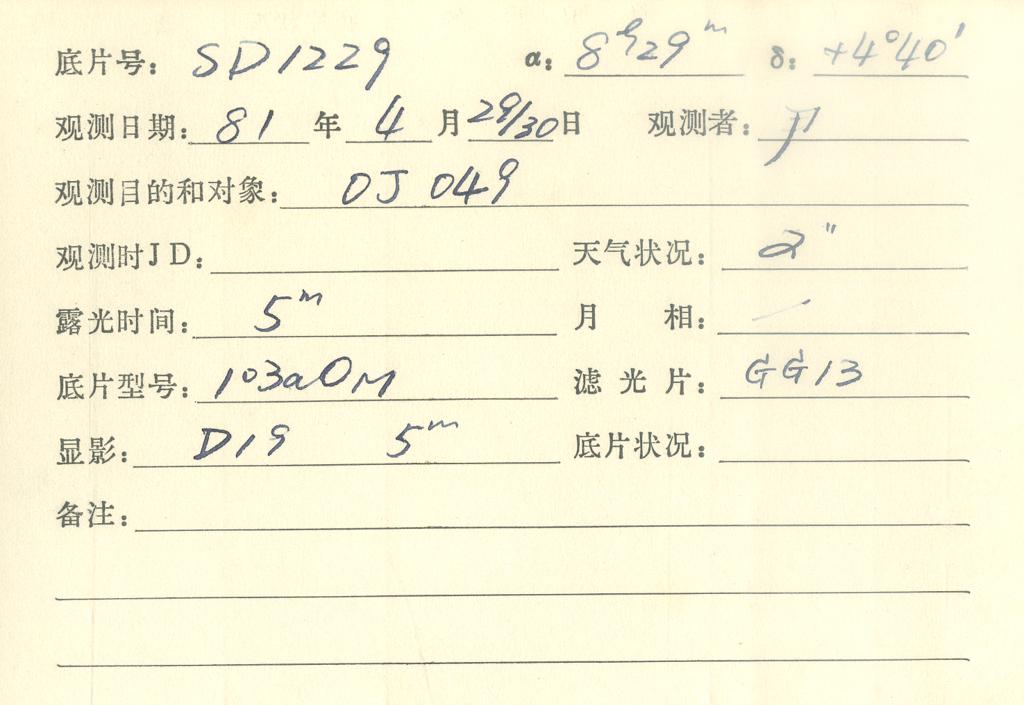 底片号: SD1229 α: 8h29m δ: +4°40′
观测日期: 81 年 4 月 29/30 日 观测者:
观测目的和对象: OJ 049
观测时JD: 天气状况: 2"
露光时间: 5m 月 相: /
底片型号: 103aOM 滤光片: GG13
显影: D19 5m 底片状况:
备注: